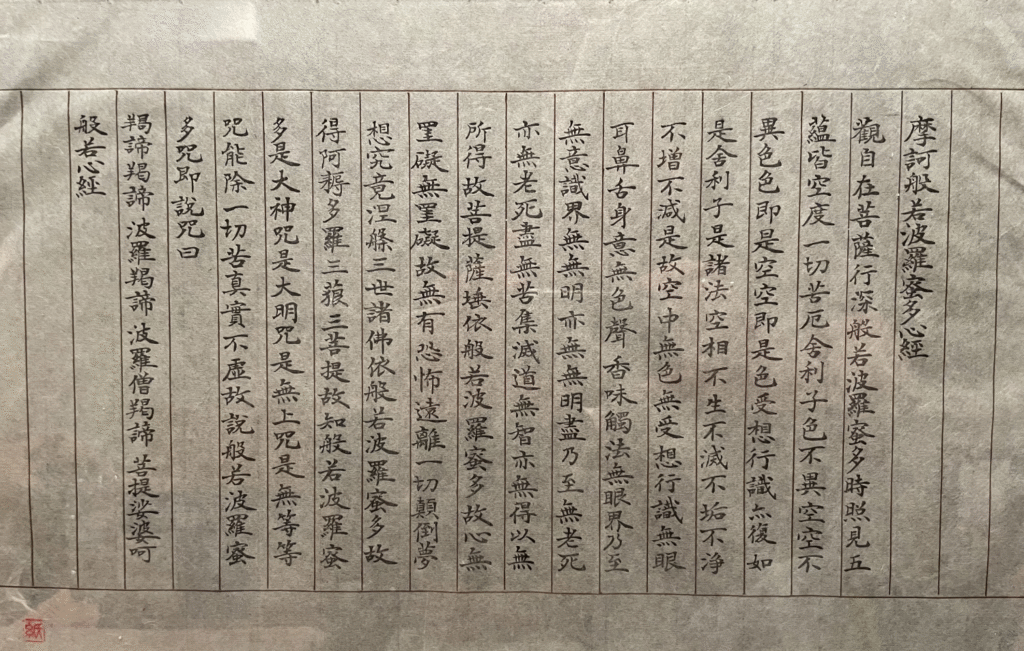 摩訶般若波羅蜜多心經
觀自在菩薩行深般若波羅蜜多時照見五
蘊皆空度一切苦厄舍利子色不異空空不
異色色即是空空即是色受想行識亦復如
是舍利子是諸法空相不生不滅不垢不淨
不增不減是故空中無色無受想行識無眼
耳鼻舌身意無色聲香味觸法無眼界乃至
無意識界無無明亦無無明盡乃至無老死
亦無老死盡無苦集滅道無智亦無得以無
所得故菩提薩埵依般若波羅蜜多故心無
罣礙無罣礙故無有恐怖遠離一切顛倒夢
想究竟涅槃三世諸佛依般若波羅蜜多故
得阿耨多羅三藐三菩提故知般若波羅蜜
多是大神咒是大明咒是無上咒是無等等
咒能除一切苦真實不虛故說般若波羅蜜
多咒即說咒曰
羯諦羯諦 波羅羯諦 波羅僧羯諦 菩提娑婆呵
般若心經